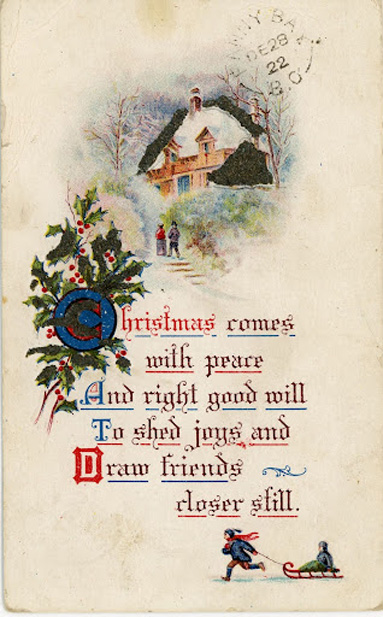 DE 28
22
B.C.
Christmas comes
with peace
And right good will
To shed joys and
Draw friends
closer still.